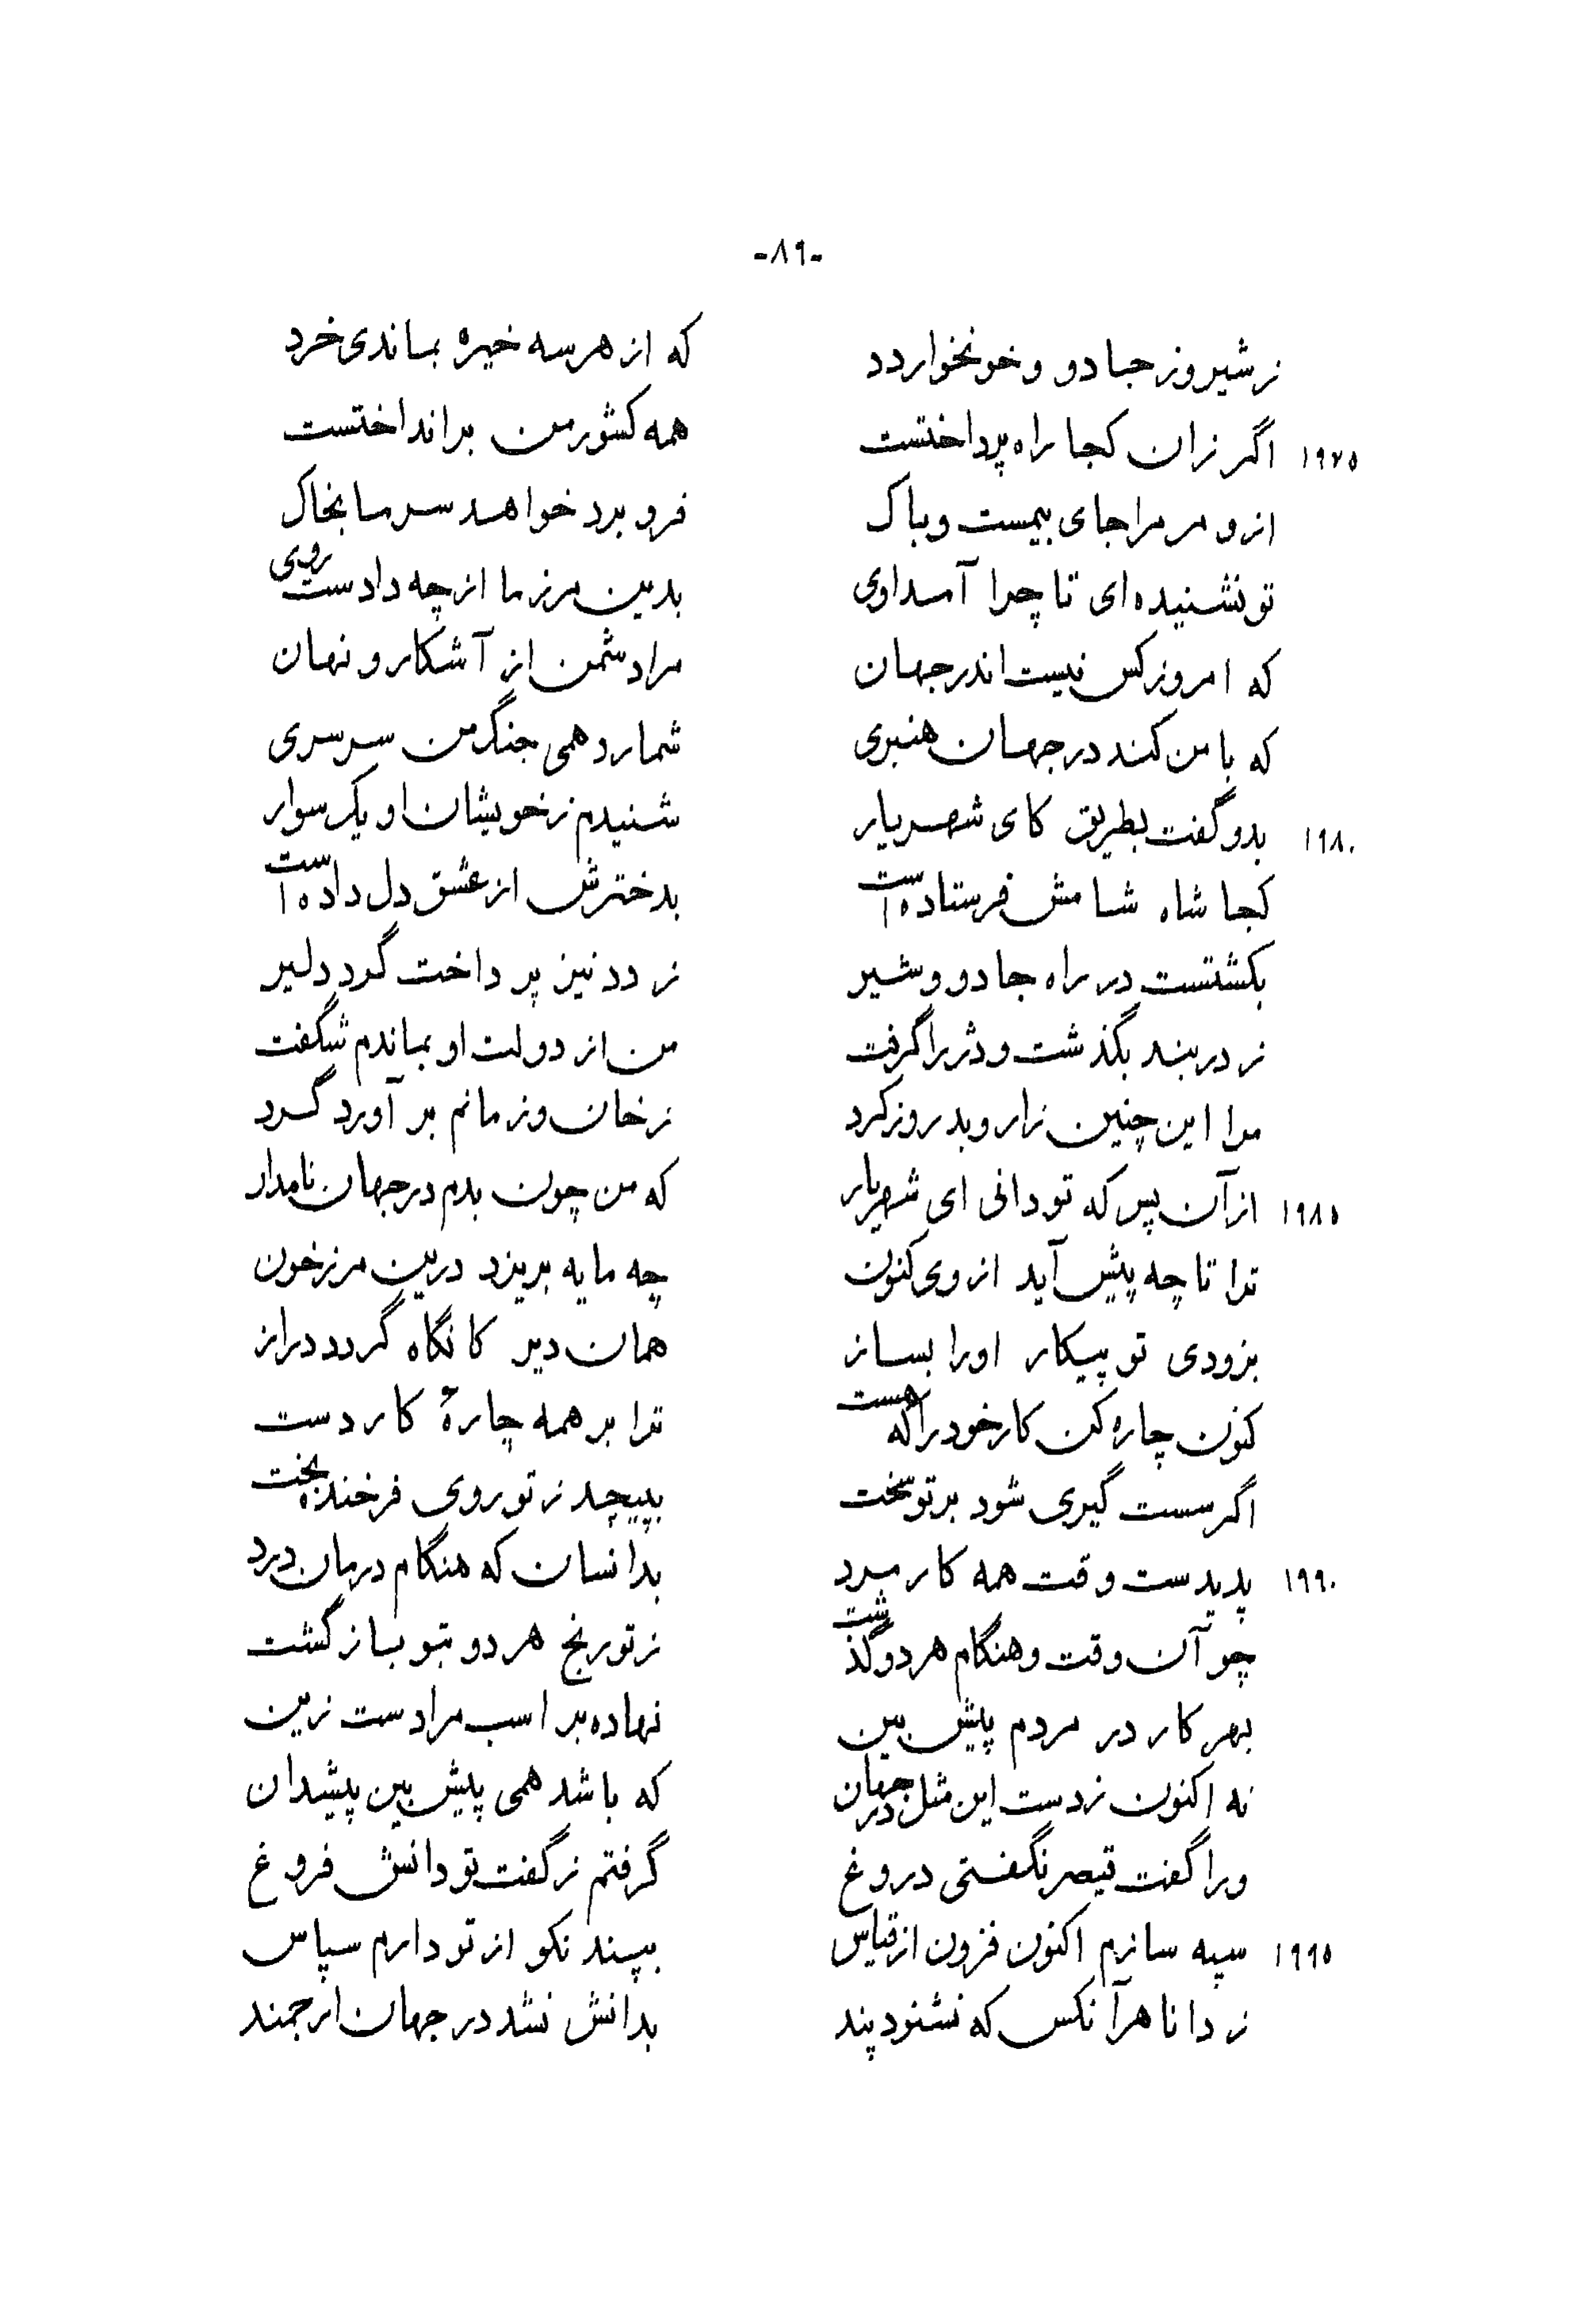 -۸۹-
ز شیر و ز جادو و خونخوار دد که از هر سه خیره بماندی خرد
۱۹۷۵ اگر زان کجا راه پرداختست همه کشور من برانداختست
ازو مر مرا جای بیمست و باک فرو برد خواهد سر ما بخاک
تو نشنیده‌ای تا چرا آمد اوی بدین مرز ما از چه دادست روی
که امروز کس نیست اندر جهان مرا دشمن از آشکار و نهان
که با من کند در جهان همبری شمارد همی جنگ من سرسری
۱۹۸۰ بدو گفت بطریق کای شهریار شنیدم ز خویشان او یک سوار
کجا شاه شامش فرستاده است بدخترش از عشق دل داده است
بکشتست در راه جادو و شیر ز دد نیز پرداخت گرد دلیر
ز دربند بگذشت و دژ را گرفت من از دولت او بماندم شگفت
مرا این چنین زار و بدروز کرد ز خان و زمانم برآورد گرد
۱۹۸۵ از آن پس که تو دانی ای شهریار که من چون بدم در جهان نامدار
ترا تا چه پیش آید از وی کنون چه مایه بریزد درین مرز خون
بزودی تو پیکار او را بساز همان دیر کانگاه گردد دراز
کنون چاره کن کار خود را که هست ترا بر همه چارهٔ کار دست
اگر سست گیری شود بر تو سخت بپیچد ز تو روی فرخنده بخت
۱۹۹۰ پدیدست وقت همه کار مرد بدانسان که هنگام درمان درد
چو آن وقت و هنگام هر دو گذشت ز تو رنج هر دو بتو بازگشت
بهر کار در مردم پیش بین نهاده بر اسب مرادست زین
نه اکنون زدست این مثل در جهان که باشد همی پیش بین پیشدان
ورا گفت قیصر نگفتی دروغ گرفتم ز گفت تو دانش فروغ
۱۹۹۵ سپه سازم اکنون فزون از قیاس بپند نکو از تو دارم سپاس
ز دانا هر آنکس که نشنود پند بدانش نشد در جهان ارجمند